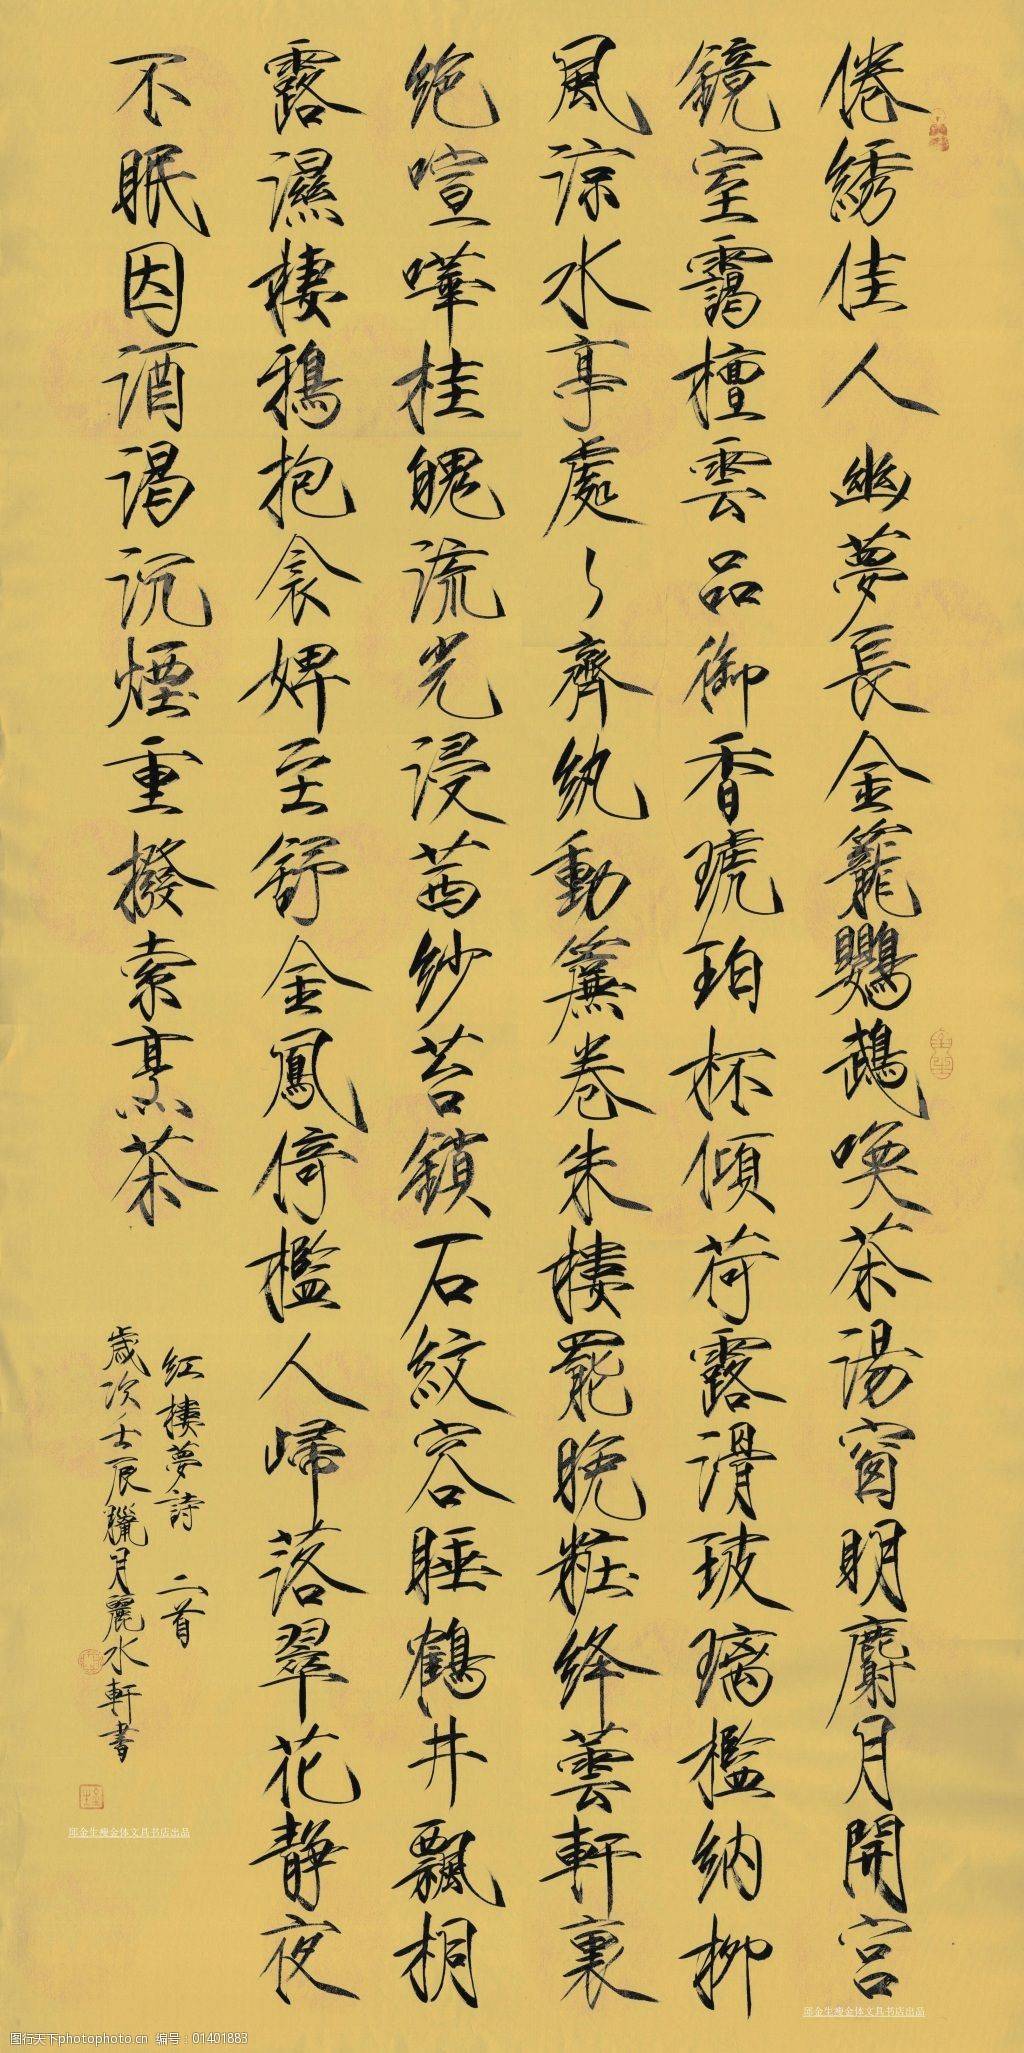 倦綉佳人幽夢長金籠鸚鵡喚茶湯窗明麝月開宮
鏡室靄檀雲品御香琥珀杯傾荷露滑玻璃檻納柳
風涼水亭處々齊紈動簾卷朱樓罷晚粧絳蕓軒裏
絶喧嘩桂魄流光浸茜紗苔鎖石紋容睡鶴井飄桐
露濕棲鴉抱衾婢至舒金鳳倚檻人歸落翠花静夜
不眠因酒渴沉煙重撥索烹茶
紅樓夢詩 二首
歲次壬辰臘月麗水軒書
邱金生瘦金体文具书店出品
邱金生瘦金体文具书店出品
图行天下photophoto.cn 编号：01401883